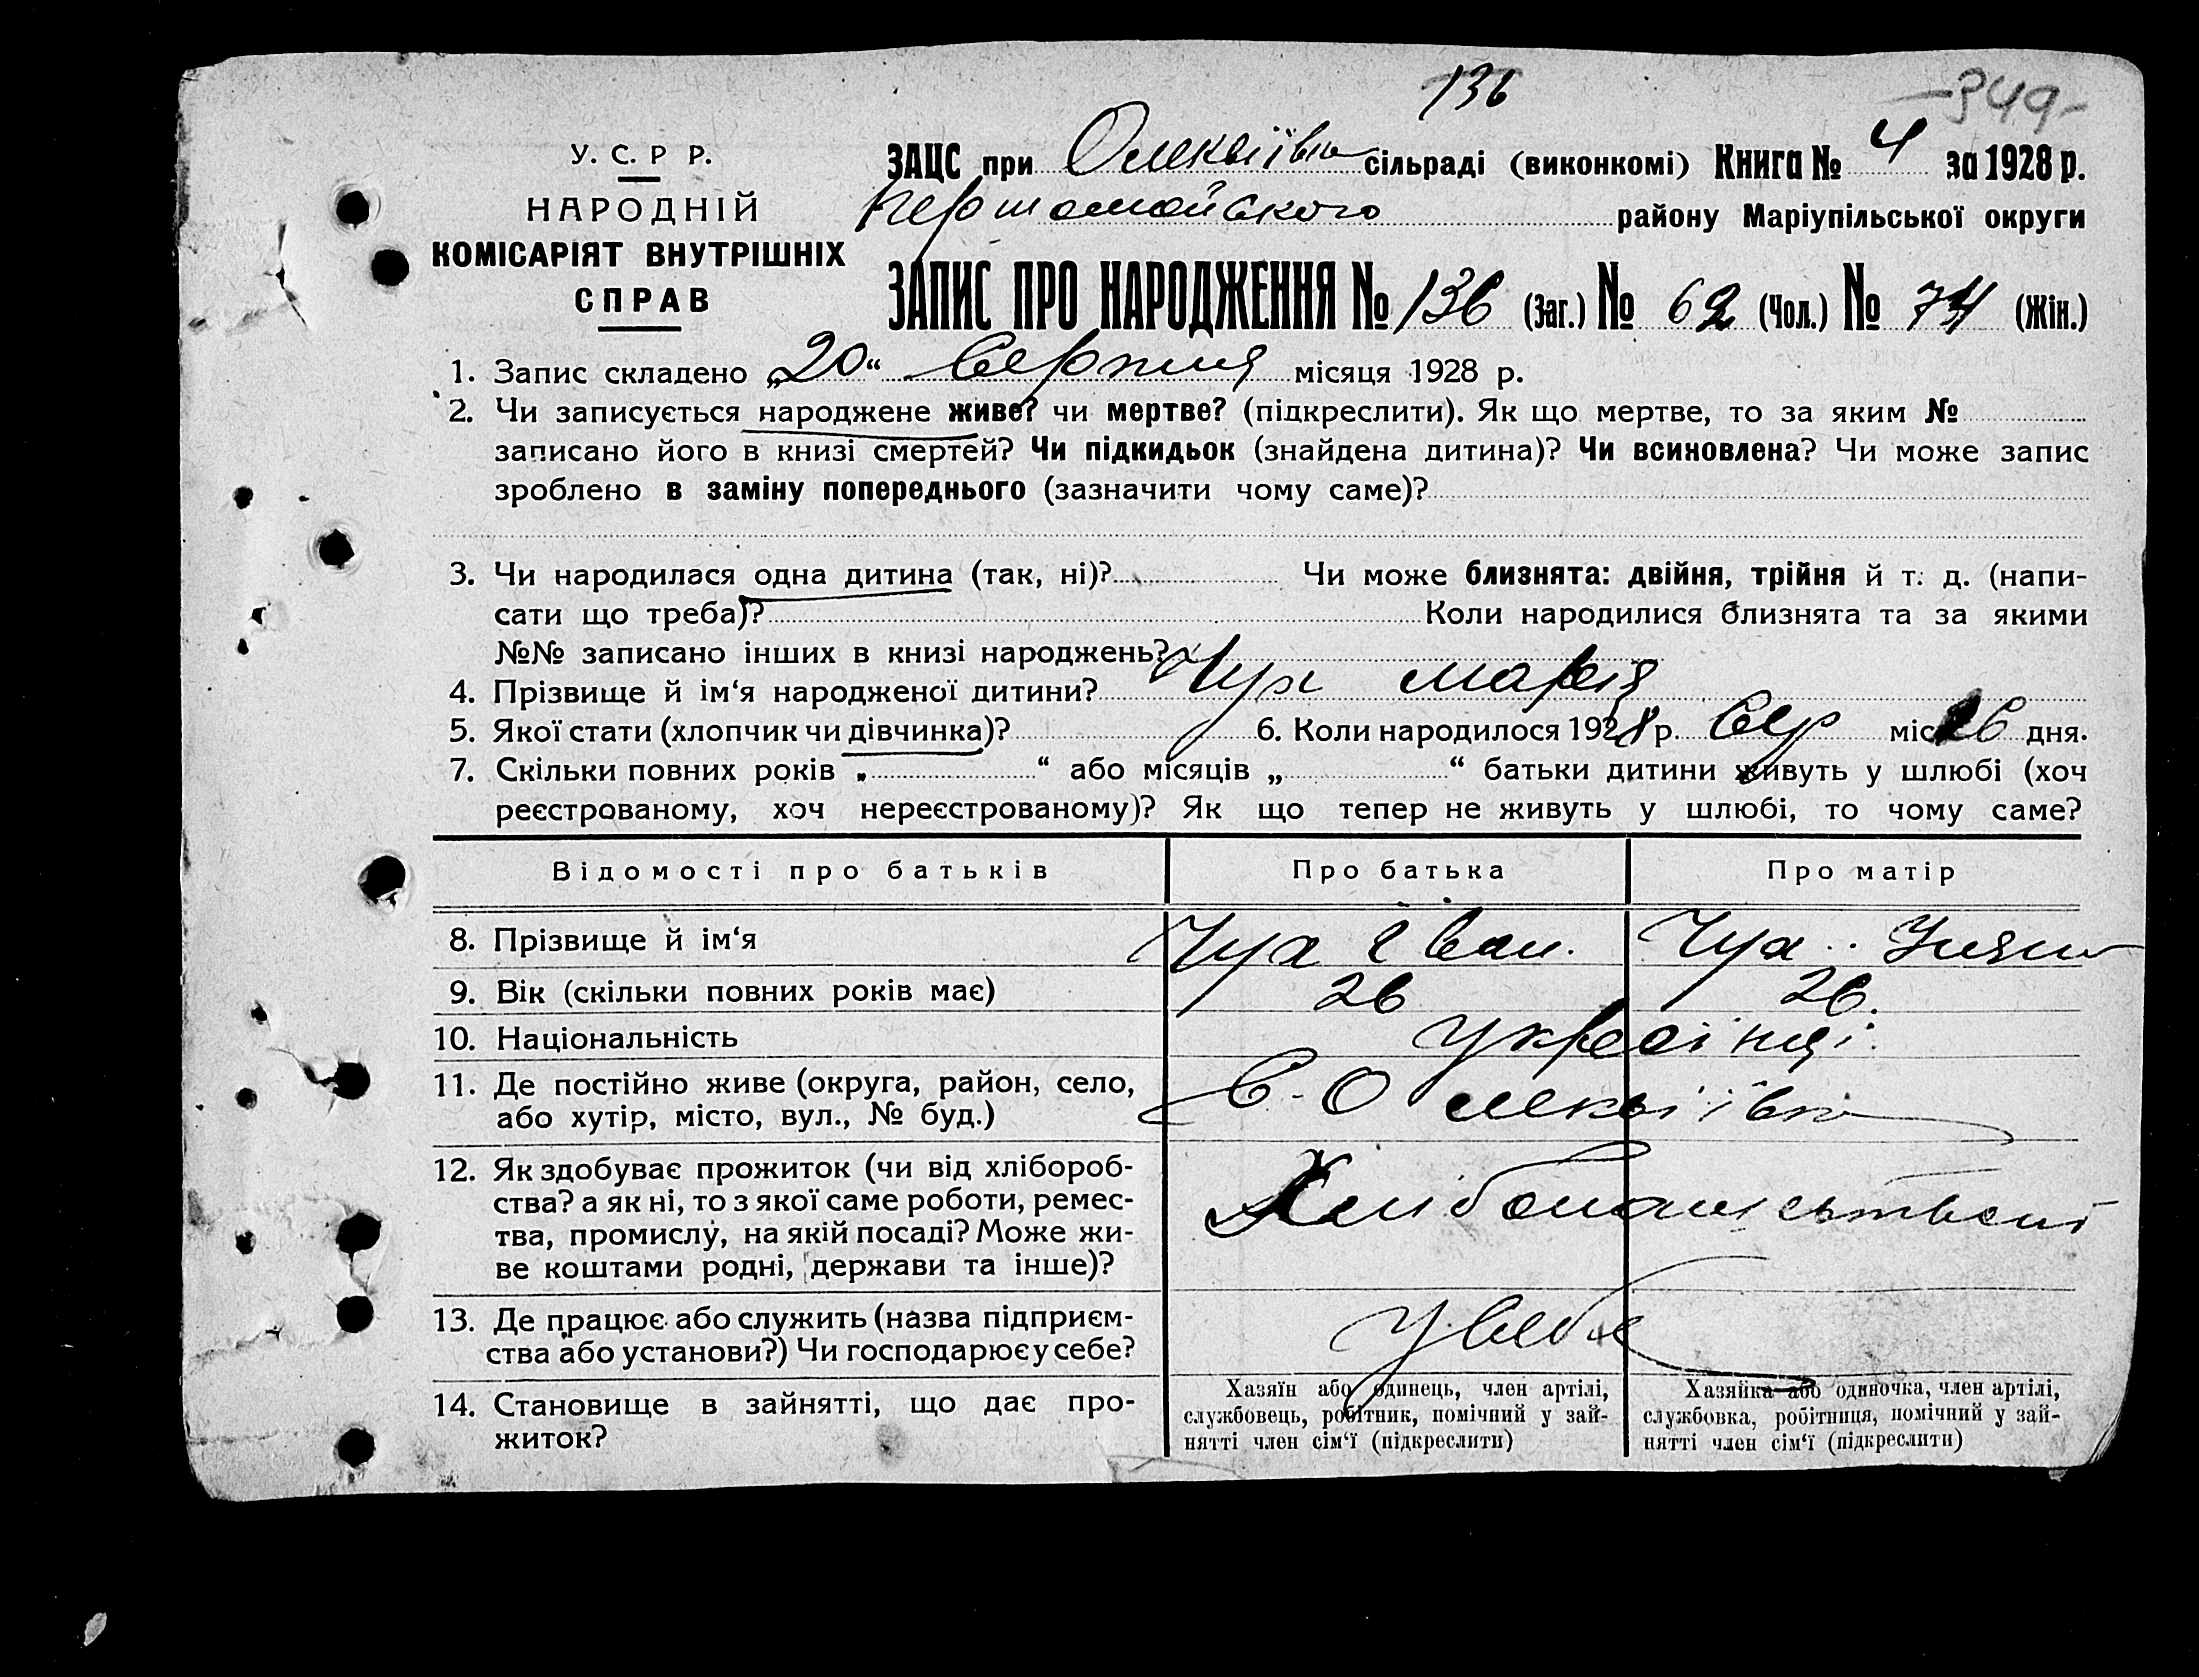 136
-349-
У. С. Р Р.
НАРОДНІЙ
КОМІСАРІЯТ ВНУТРІШНІХ
СПРАВ
ЗАЦС при Олексіївка сільраді (виконкомі) Книга № 4 за 1928 р.
Першомайського району Маріупільської округи
ЗАПИС ПРО НАРОДЖЕННЯ № 136 (Заг.) № 62 (Чол.) № 74 (Жін.)
1. Запис складено „20“ Серпня місяця 1928 р.
2. Чи записується народжене живе? чи мертве? (підкреслити). Як що мертве, то за яким №
записано його в книзі смертей? Чи підкидьок (знайдена дитина)? Чи всиновлена? Чи може запис
зроблено в заміну попереднього (зазначити чому саме)?
3. Чи народилася одна дитина (так, ні)? Чи може близнята: двійня, трійня й т. д. (напи-
сати що треба)? Коли народилися близнята та за якими
№№ записано інших в книзі народжень?
4. Прізвище й ім‘я народженої дитини? Чух Марія
5. Якої стати (хлопчик чи дівчинка)? 6. Коли народилося 1928 р. Сер міс 16 дня.
7. Скільки повних років „ “ або місяців „ “ батьки дитини живуть у шлюбі (хоч
реєстрованому, хоч нереєстрованому)? Як що тепер не живуть у шлюбі, то чому саме?
Відомості про батьків Про батька Про матір
8. Прізвище й ім‘я Чух Іван. Чуха
9. Вік (скільки повних років має) 26 26.
10. Національність Українці
11. Де постійно живе (округа, район, село,
або хутір, місто, вул., № буд.)
С. Олексіївка
12. Як здобуває прожиток (чи від хлібороб-
ства? а як ні, то з якої саме роботи, ремес-
тва, промислу, на якій посаді? Може жи-
ве коштами родні, держави та інше)?
13. Де працює або служить (назва підприєм-
ства або установи?) Чи господарює у себе?
У себе
14. Становище в зайнятті, що дає про-
житок?
Хазяїн або одинець, член артілі,
службовець, робітник, помічний у зай-
нятті член сім‘ї (підкреслити)
Хазяйка або одиночка, член артілі,
службовка, робітниця, помічний у зай-
нятті член сім‘ї (підкреслити)